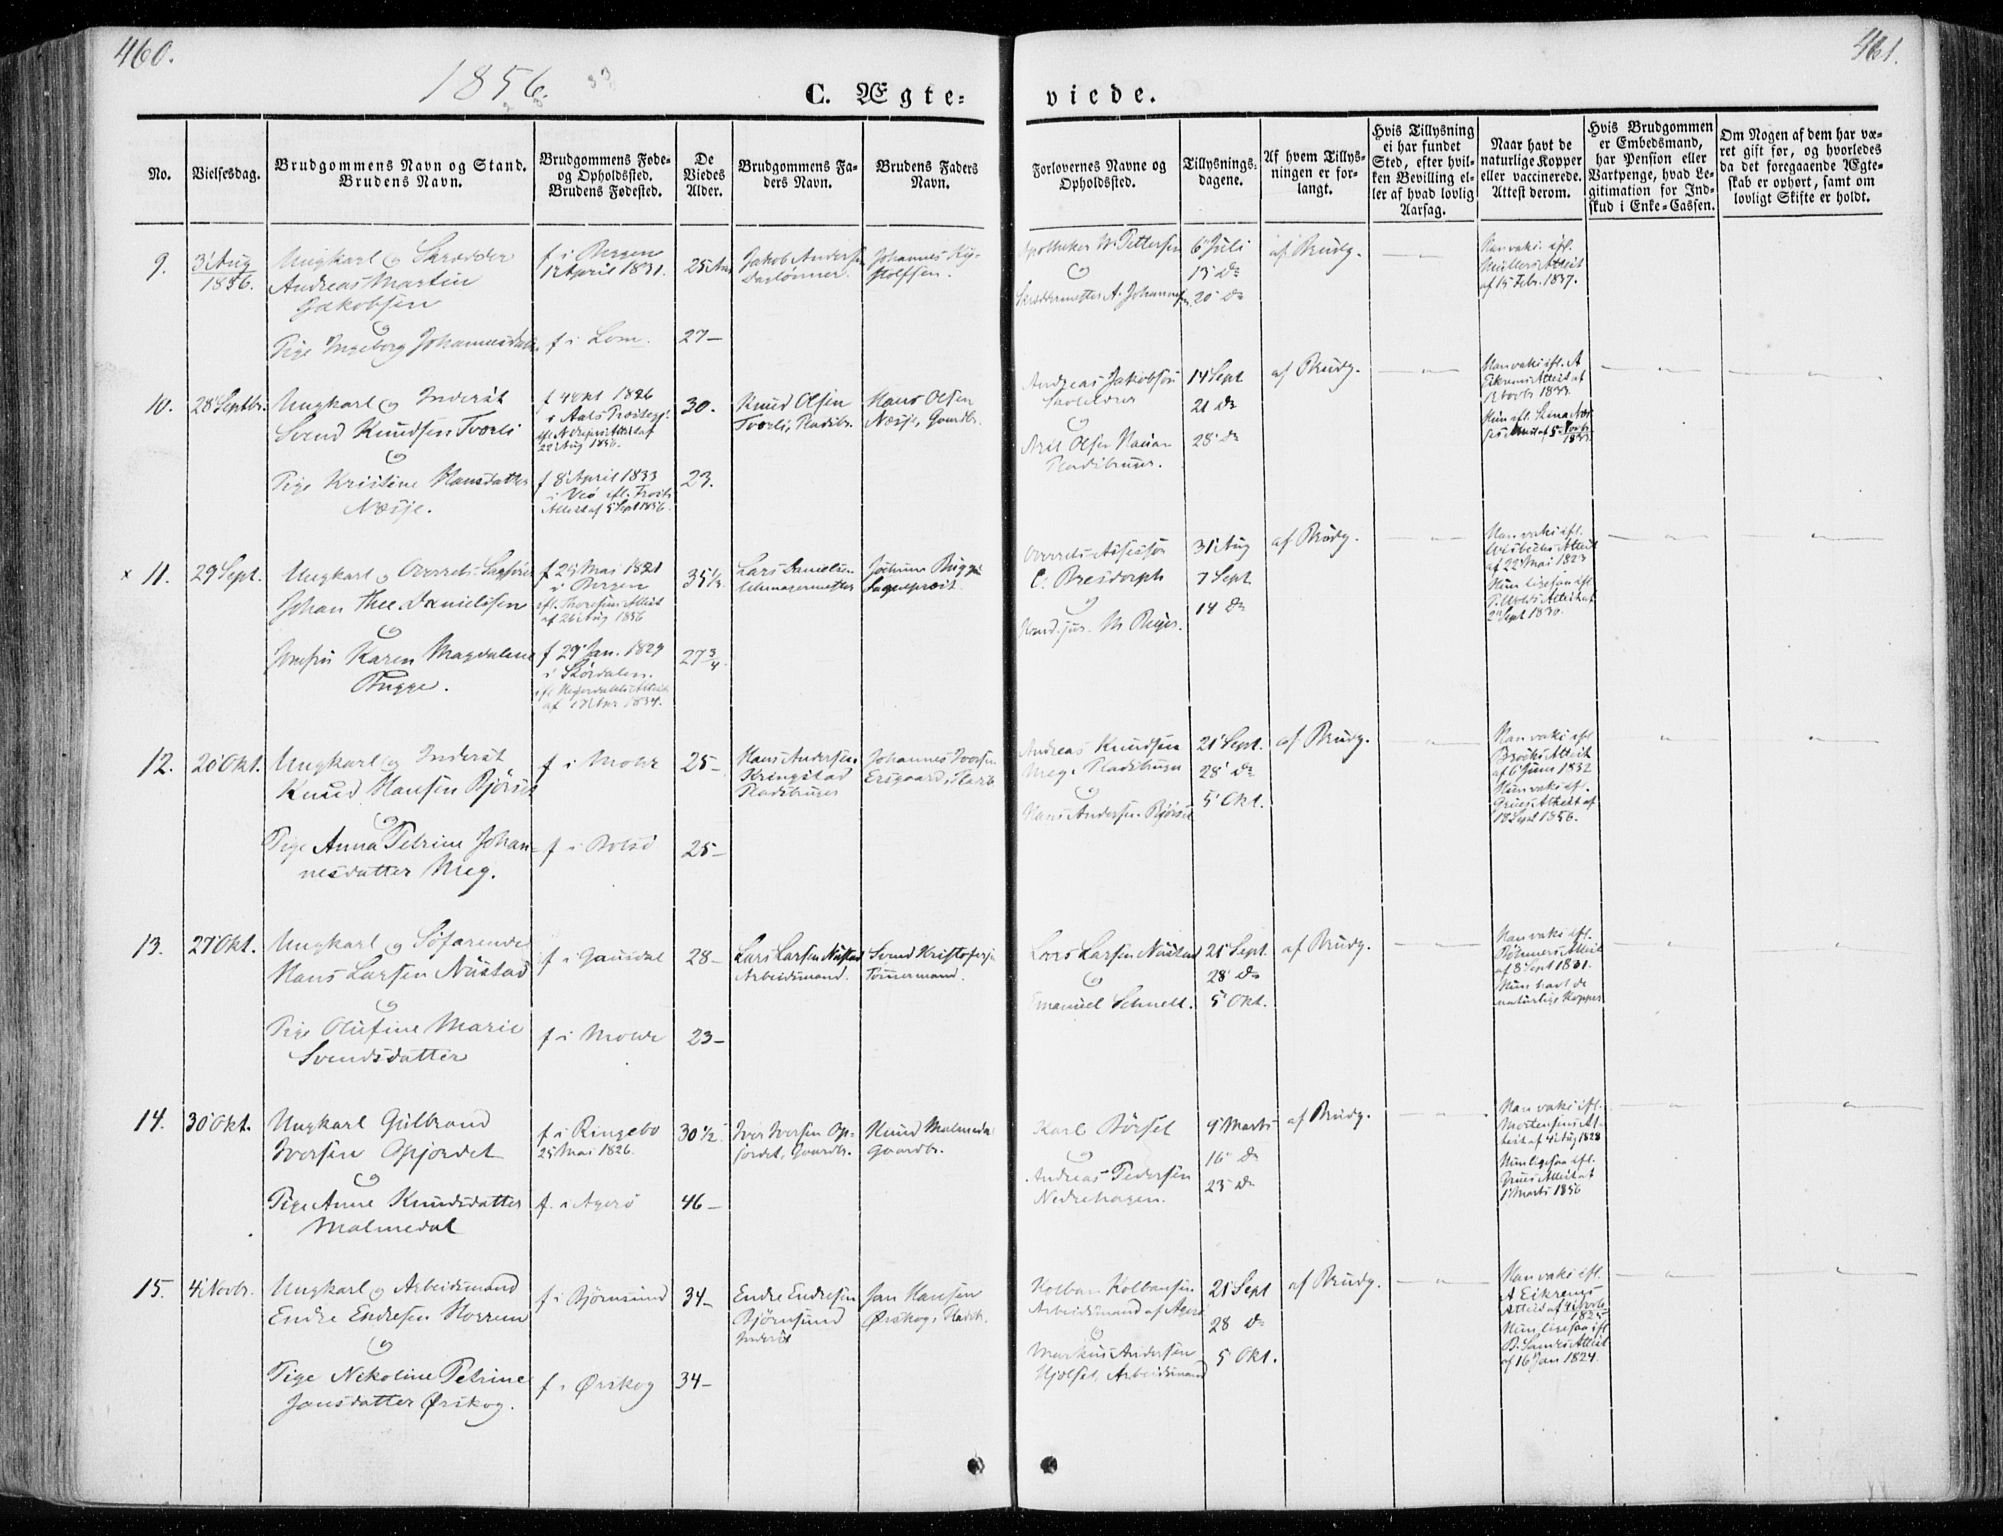 460.
461.
1856.
C. Ægte=
viede.
No.
Vielsesdag.
Brudgommens Navn og Stand.
Brudens Navn.
Brudgommens Føde-
og Opholdssted.
Brudens Fødested.
De
Viedes
Alder.
Brudgommens Fa-
ders Navn.
Brudens Faders
Navn.
Forlovernes Navne og
Opholdssted.
Tillysnings-
dagene.
Af hvem Tillys-
ningen er for-
langt.
Hvis Tillysning
ei har fundet
Sted, efter hvil-
ken Bevilling el-
ler af hvad lovlig
Aarsag.
Naar havt de
naturlige Kopper
eller vaccinerede.
Attest derom.
Hvis Brudgommen
er Embedsmand,
har Pension eller
Vartpenge, hvad Le-
gitimation for Ind-
skud i Enke-Cassen.
Om Nogen af dem har væ-
ret gift før, og hvorledes
da det foregaaende Ægte-
skab er ophørt, samt om
lovligt Skifte er holdt.
9.
3 Aug
1856.
Ungkarl og Skrædder
Andreas Martin
Jakobsen
Pige Ingeborg
f i Bergen
April 1831.
f i Lom.
25
27
Jakob Andersen
Johannes
Apotheker W. Pettersen
Skræddermester A.
6 Juli
13 Do
20 Do
af Brudg.
Han vaki. ifl.
Müllers Attest
af 15 Febr. 1837.
10.
28 Septbr.
Ungkarl og Inderst
Svend Knudsen Tværli
Pige Kristine Hansdatter
Næsje.
f 4 Okt 1826
i Aals Præstegj.
22 Aug 1856.
f 8 April 1833
i Veø ifl.
Attest af 5 Sept 1856.
30.
23.
Knud Olsen
Tværli, Pladsbr.
Hans Olsen
Næsje, Gaardbr.
Andreas Jakobsen
Skolelærer
Olsen
Pladsbruger.
14 Sept
21 Do
28 Do
af Brudg.
Han vaki ifl. A
Attest af
11.
29 Sept.
Ungkarl og Overrets-Sagfører
Johan Thee Danielssen
Jomfru Karen Magdalene
Bugge.
f 25 Mai 1821
i Bergen
ifl. Thoresens Attest
af 26 Aug 1856
f 29 Jan. 1829
i Størdalen.
35 1/3
27 3/4
Lars Danielsen
Bugge
Sognepræst.
Overrets-Assessor
C. Bresdorph
Kand. jur.
31 Aug
7 Sept
14 Do
af Brudg.
Han vaki ifl.
Attest
af 22 Mai 1823
Hun ligesaa ifl
Attest af
2 Sept 1830.
12.
20 Okt.
Ungkarl og Inderst
Knud Hansen Bjørset
Pige Anna Petrine Johan-
nesdatter Meg.
f i Molde
f i Bolsø
25
25
Hans Andersen
Kringstad
Pladsbruger
Johannes Iversen
Andreas Knudsen
Meg, Pladsbruger
Hans Andersen Bjørset
21 Sept.
28 Do
5 Okt.
af Brudg.
Han vaki ifl
Brocks Attest
af 6 Juni 1832
Hun vaki ifl.
Grues Attest af
18 Sept 1856.
13.
27 Okt.
Ungkarl og Søfarende
Hans Larsen Nustad
Pige Olufine Marie
Svendsdatter
f i Gausdal
f i Molde
28
23
Lars Larsen Nustad
Arbeidsmand.
Svend Kristofersen
Tømmermand.
Lars Larsen Nustad
Emanuel Schnell.
21 Sept.
28 Do
5 Okt.
af Brudg.
Han vaki ifl.
Attest
af 8 Sept 1831.
Hun havt de
naturlige Kopper
14.
30 Okt.
Ungkarl Gulbrand
Iversen Opjordet
Pige Anne Knudsdatter
Malmedal
f i Ringebo
25 Mai 1826.
f. i Agerø
30 1/2
46
Iver Iversen Op-
jordet, Gaardbr.
Knud Malmedal
Gaardbr.
Karl Børset
Andreas Pedersen
Nedrehagen.
9 Marts
16 Do
23 Do
af Brudg.
Han vaki ifl.
Mortensens At-
test af 4 Aug 1828
Hun ligesaa ifl.
Grues Attest af
1 Marts 1856
15.
4 Novbr.
Ungkarl og Arbeidsmand
Endre Endresen Horrem
Pige Nikoline Petrine
Jansdatter Ørskog.
f i Bjørnsund
f i Ørskog
34
34
Endre Endresen
Bjørnsund
Inderst
Jan Hansen
Ørskog, Pladsb.
Kolban Kolbansen
Arbeidsmand af Agerø
Markus Andersen
Hjelset, Arbeidsmand
21 Sept
28 Do
5 Okt.
af Brudg.
Han vaki ifl.
A Eikrems
Attest af 4 Novbr
1825
Hun ligesaa ifl
B. Sandes Attest
af 16 Jan 1824.